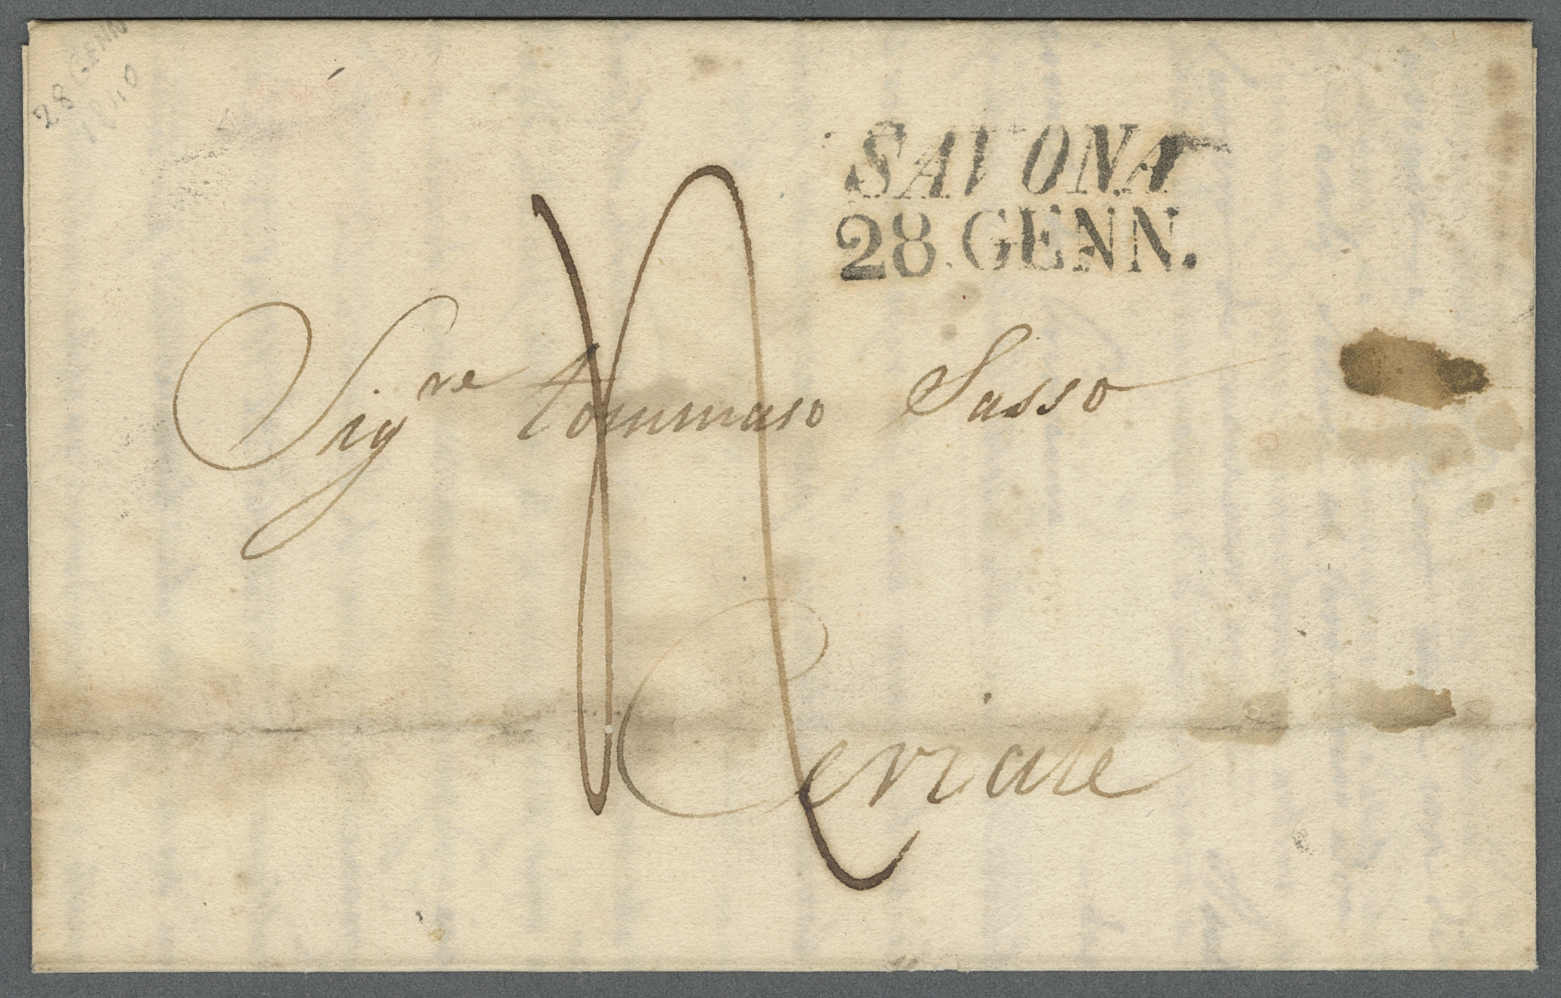 28 GENN
1840
SAVONA
28 GENN.
Sig.re tommaso Sasso
Ceriale